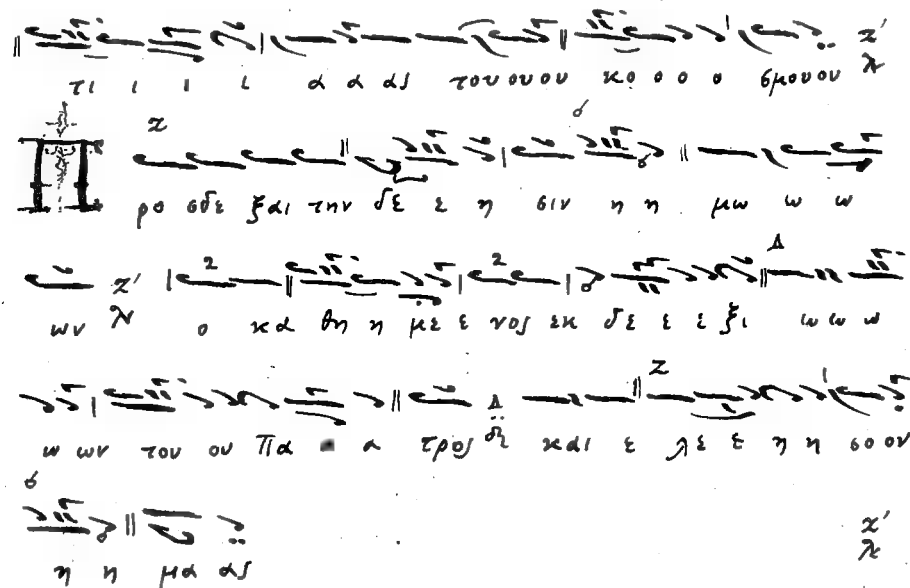 τι ι ι ι α α ας του ου ου κο ο ο ο σμου ου Ζ' λ
Ζ
ρο σδε ξαι την δε ε η σιν η η μω ω ω
ων Ζ' λ ο κα θη η με ε νος εκ δε ε ε ξι ω ω ω
ω ων του ου Πα α α τρος Δ δι και ε λε ε η η σο ον
η η μα ας Ζ' λ